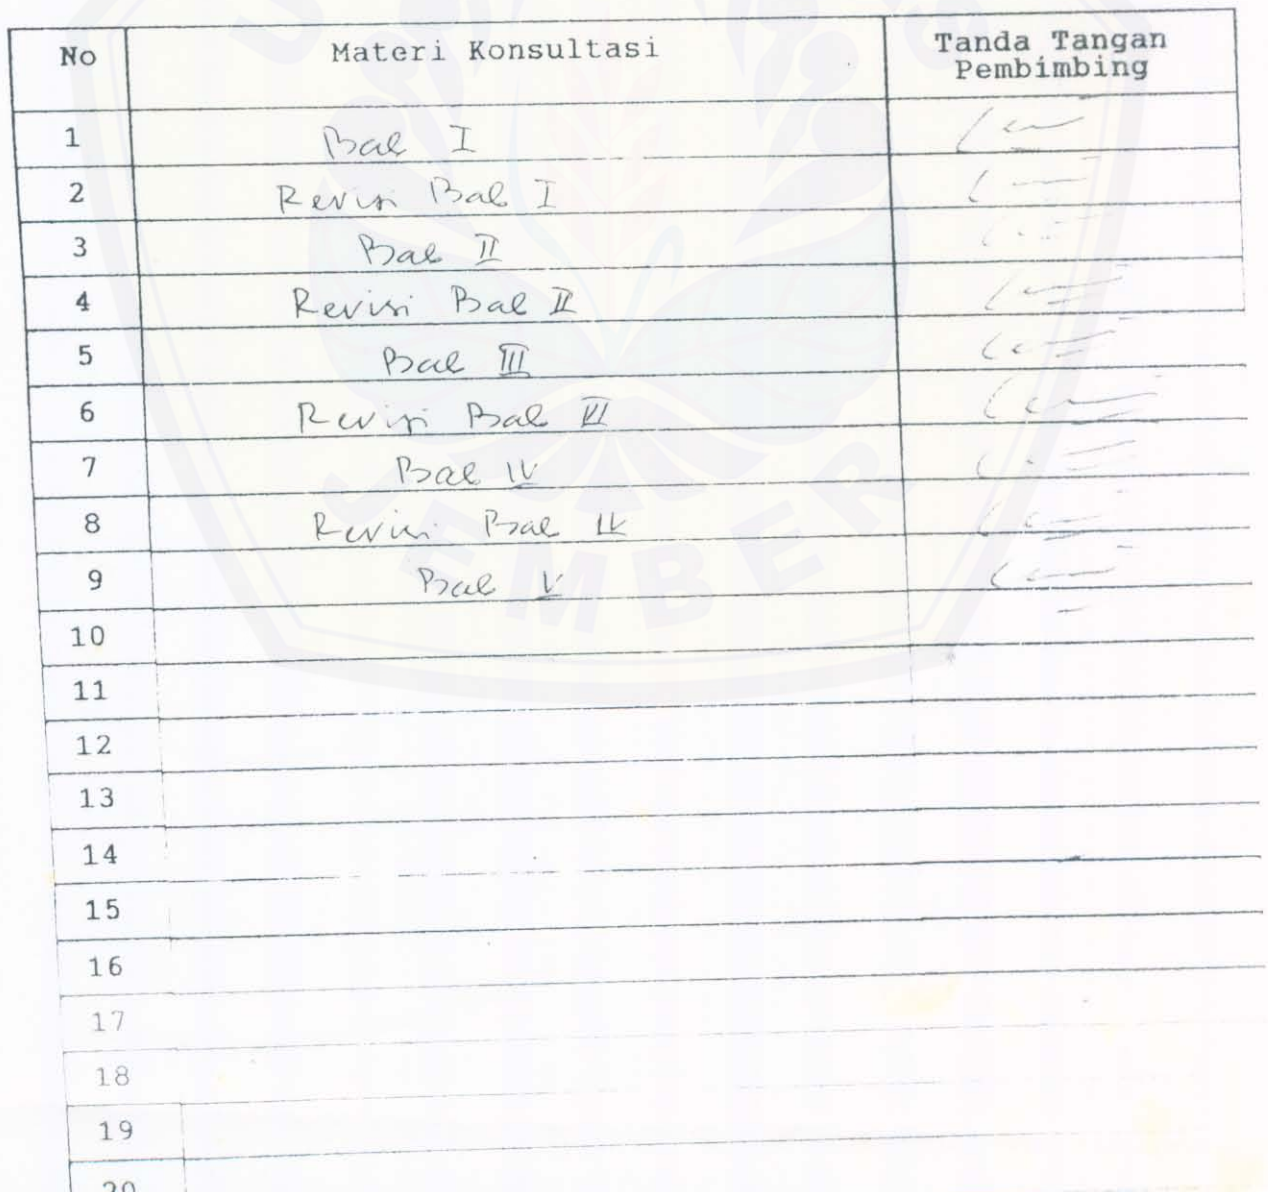 No Materi Konsultasi Tanda Tangan Pembimbing
1 Bab I
2 Revisi Bab I
3 Bab II
4 Revisi Bab II
5 Bab III
6 Revisi Bab
7 Bab IV
8 Revisi Bab IV
9 Bab V
10
11
12
13
14
15
16
17
18
19
20
JEMBER